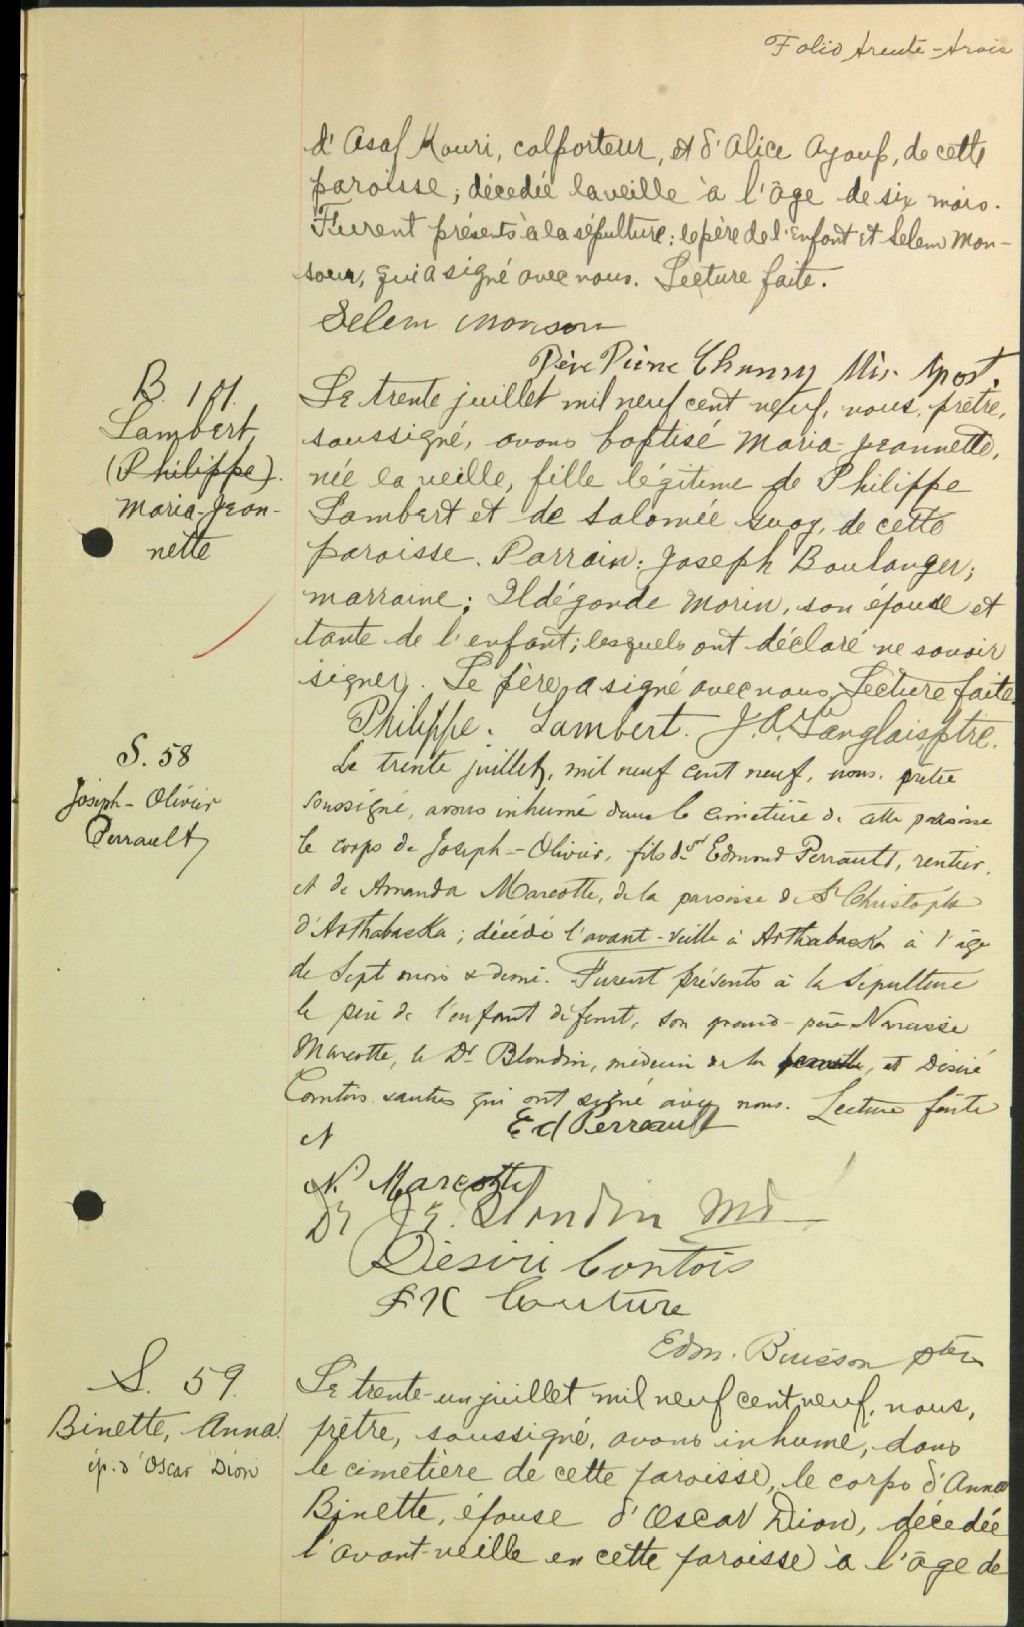 Folio trente-trois
d'Asaf Kouri, colporteur, et d'Alice Ayoup, de cette
paroisse; décédée la veille à l'âge de six mois.
Furent présents à la sépulture: le père de l'enfant et Selem Mon-
sour, qui a signé avec nous. Lecture faite.
Selem Monsour
Père Pierre Mis. Apost.
B. 101.
Lambert,
(Philippe).
Maria-Jean-
nette
Le trente juillet mil neuf cent neuf, nous, prêtre,
soussigné, avons baptisé Maria-Jeannette,
née la veille, fille légitime de Philippe
Lambert et de Salomée de cette
paroisse. Parrain: Joseph Boulanger;
marraine; Ildégonde Morin, son épouse et
tante de l'enfant; lesquels ont déclaré ne savoir
signer. Le père a signé avec nous. Lecture faite.
Philippe. Lambert. Langlais, ptre.
S. 58
Joseph-Olivier
Perrault
Le trente juillet, mil neuf cent neuf, nous, prêtre
soussigné, avons inhumé dans le cimetière de cette paroisse
le corps de Joseph-Olivier, fils de Edmond Perrault, rentier,
et de Amanda Marcotte, de la paroisse de St Christophe
d'Arthabaska; décédé l'avant-veille à Arthabaska à l'âge
de sept mois & demi. Furent présents à la sépulture
le père de l'enfant défunt, son grand-père Narcisse
Marcotte, le Dr Blondin, médecin de la famille, et Désiré
Comtois & autres qui ont signé avec nous. Lecture faite
Ed Perrault
N. Marcotte
Dr J E. Blondin MD
Désiré Contois
F X Couture
Edm. Buisson ptre
S. 59.
Binette, Anna
ép. d'Oscar Dion
Le trente-un juillet mil neuf cent neuf, nous,
prêtre, soussigné, avons inhumé, dans
le cimetière de cette paroisse, le corps d'Anna
Binette, épouse d'Oscar Dion, décédée
l'avant-veille en cette paroisse à l'âge de